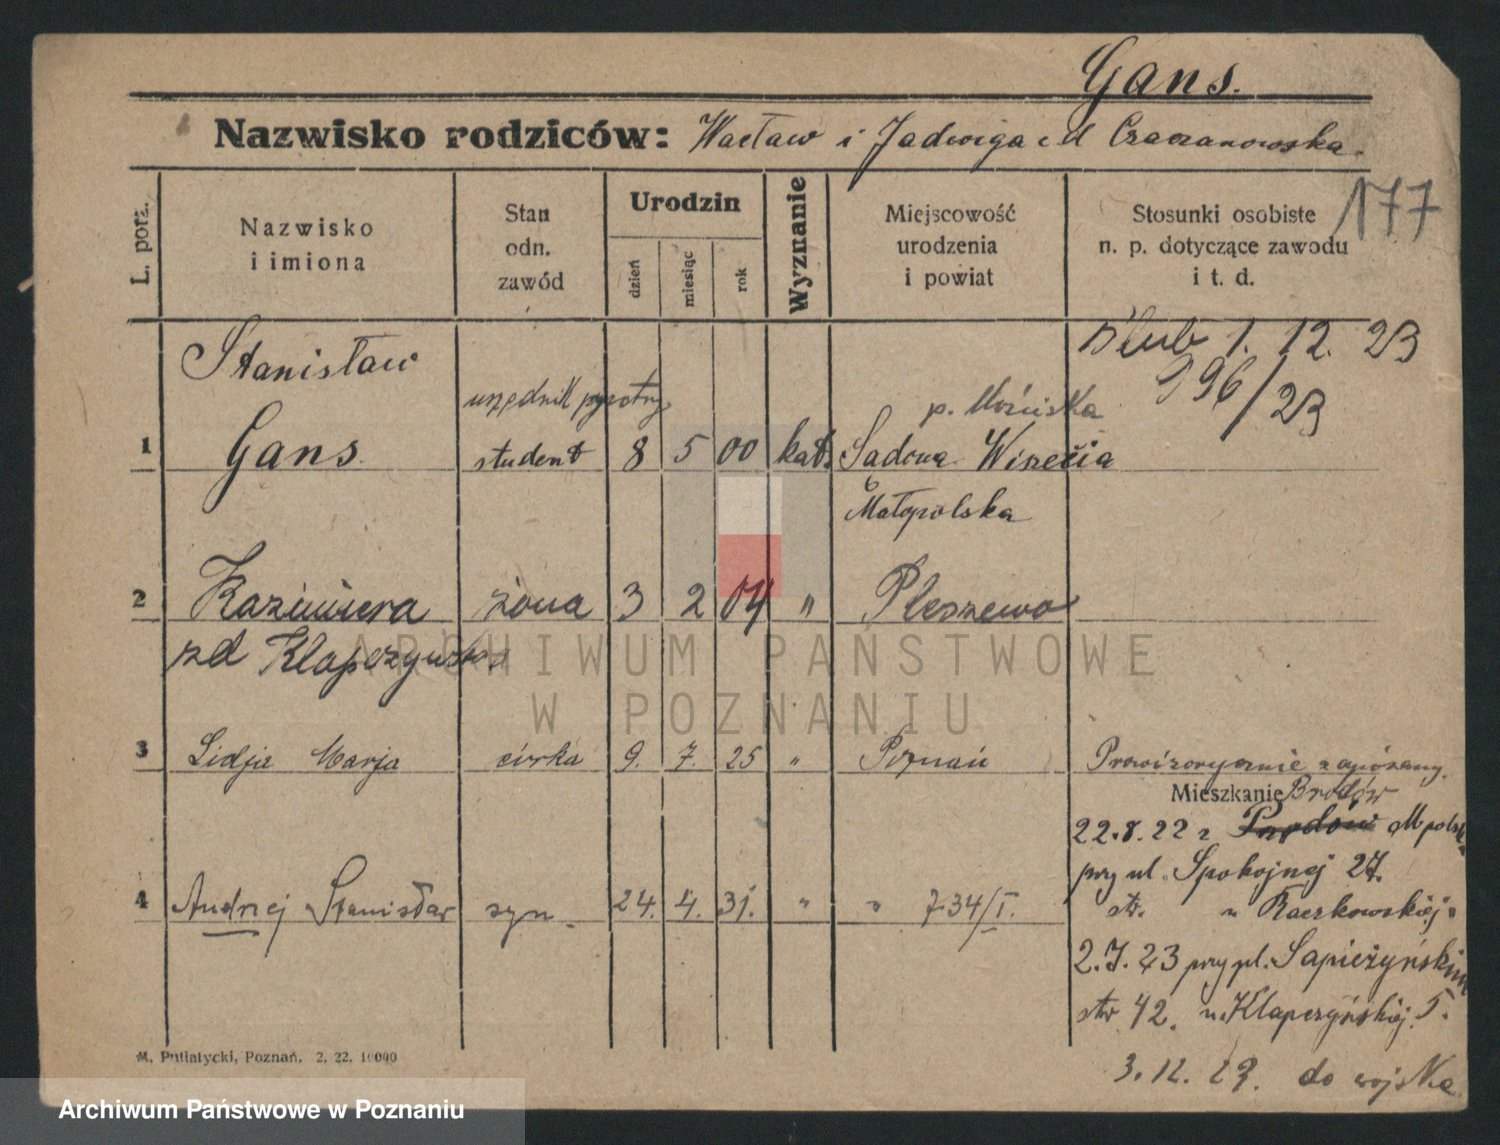 Gans.
Nazwisko rodziców: Wacław i Jadwiga zd Czaczanowska.
177
L. porz.
Nazwisko
i imiona
Stan
odn.
zawód
Urodzin
dzień
miesiąc
rok
Wyznanie
Miejscowość
urodzenia
i powiat
Stosunki osobiste
n. p. dotyczące zawodu
i t. d.
Ślub 1. 12. 23
996/23
Stanisław
urzędnik prywatny
p. Mościska
1 Gans. student 8 5 00 kat. Sądowa Wisznia
Małopolska
2 Kazimiera żona 3 2 04 " Pleszewo
zd Klapczyńska
3 Lidja Marja córka 9. 7. 25 " Poznań Prowizorycznie zapisany.
Mieszkanie Brodów
22.8.22 z Małopolska
przy ul. Spokojnej 27.
4 Andrzej Stanisław syn. 24. 4. 31. " " 734/I. str. u Raczkowskiej
2.7.23 przy pl. Sapieżyńskim
str 42. u Klapczyńskiej. 5.
3.12.23. do wojska
M. Putiatycki, Poznań. 2. 22. 10000
ARCHIWUM PAŃSTWOWE
W POZNANIU
Archiwum Państwowe w Poznaniu